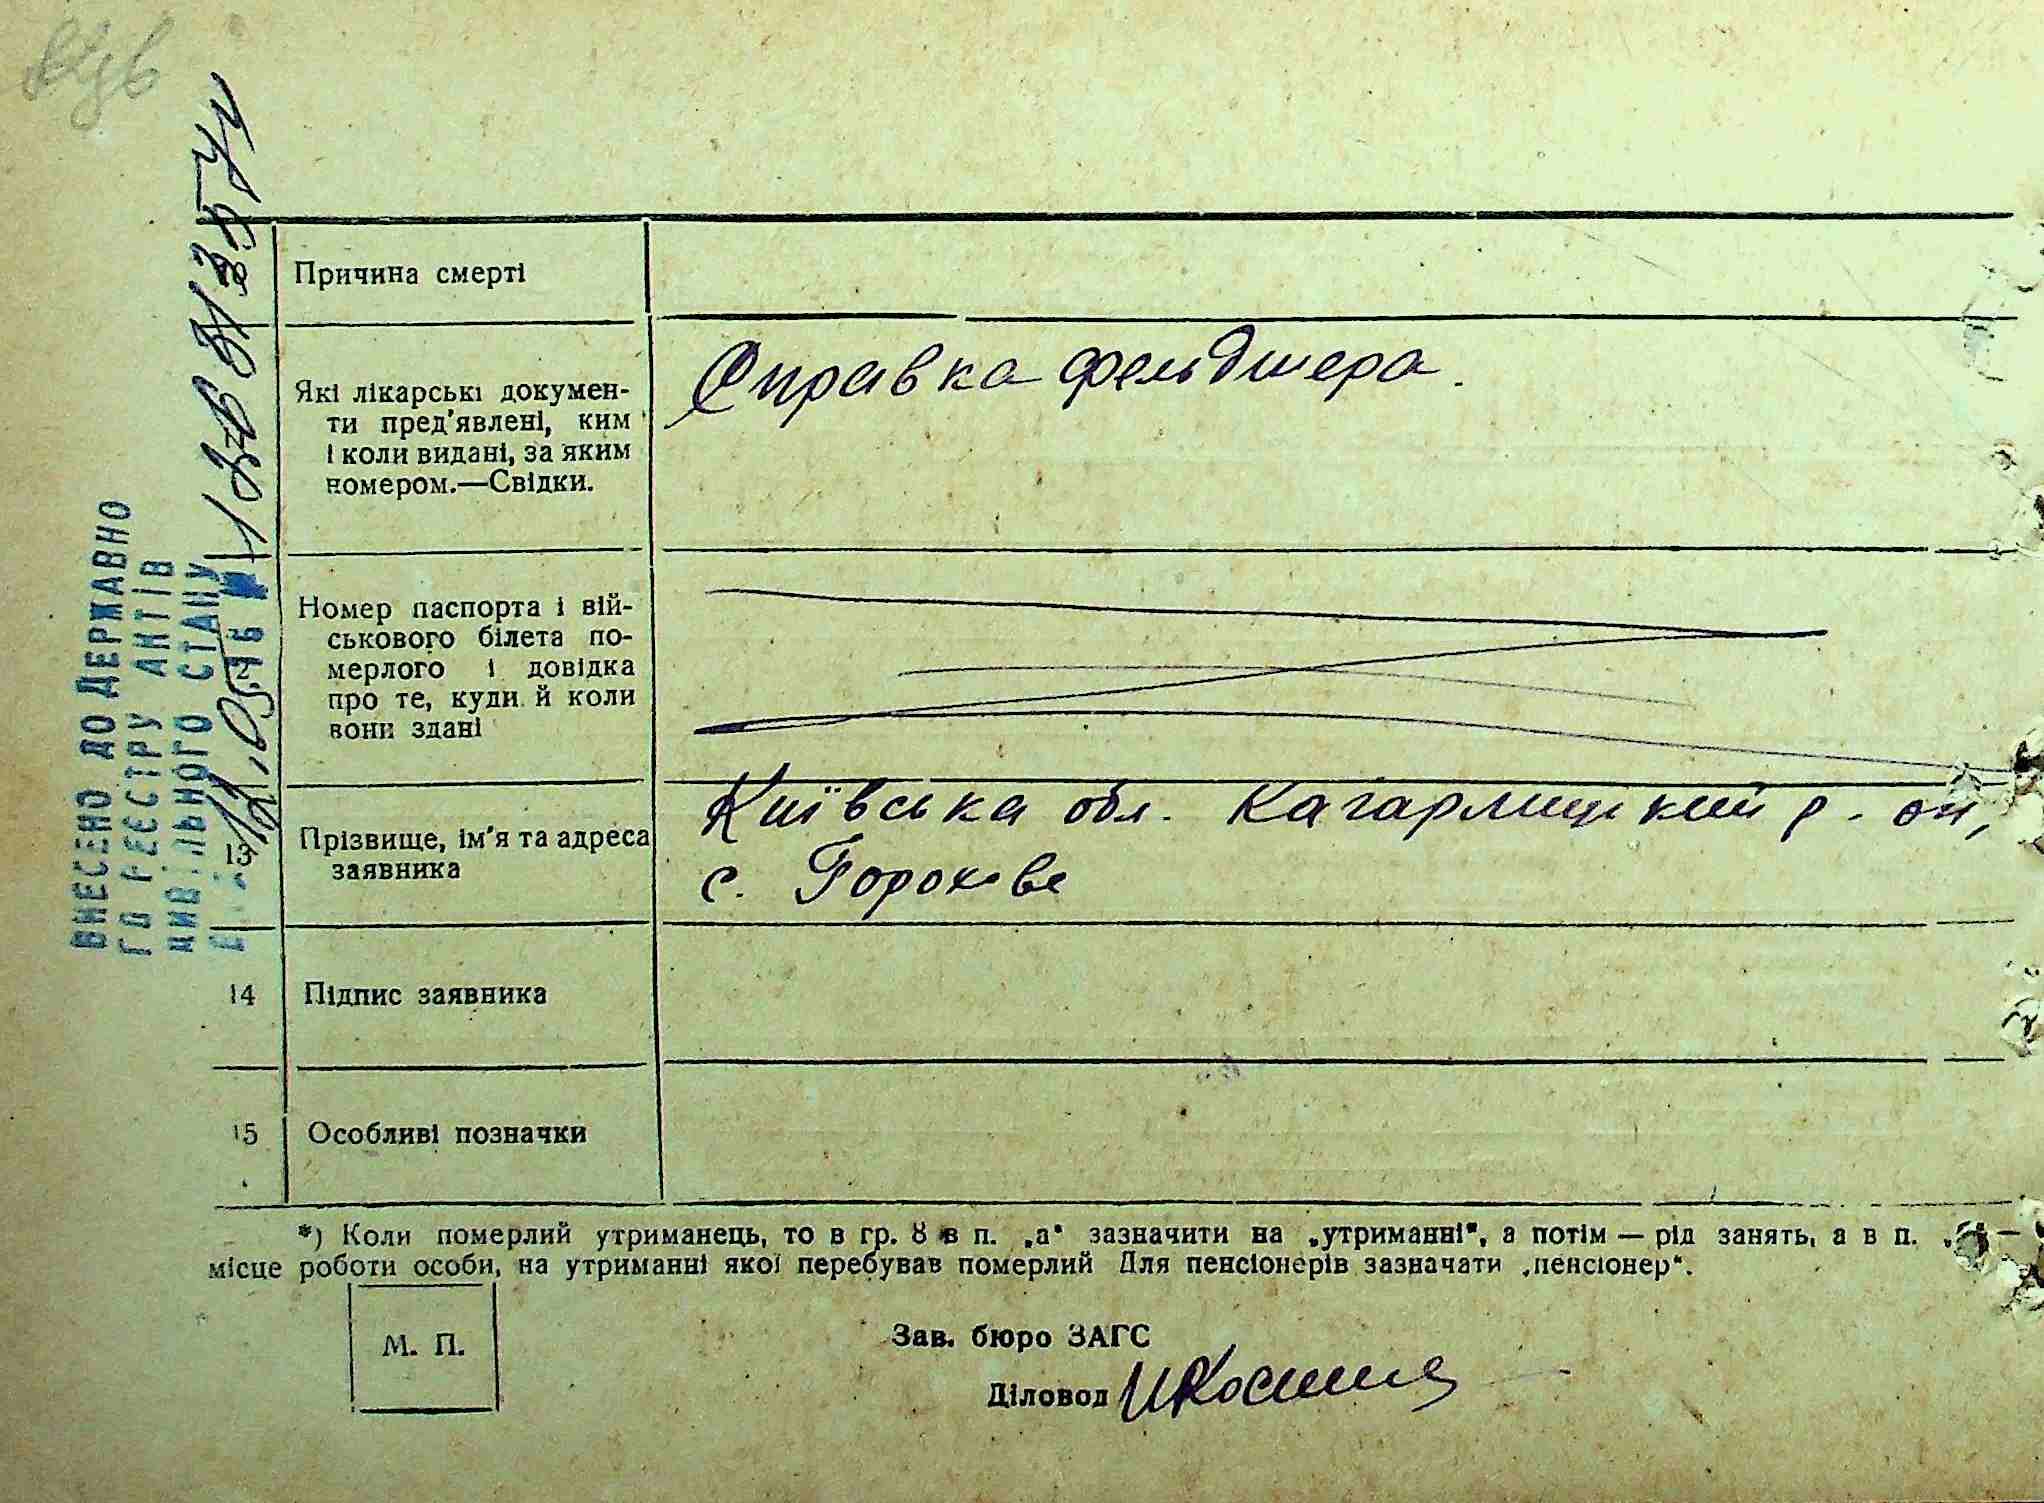 ВНЕСЕНО ДО ДЕРЖАВНО
ГО РЕЄСТРУ АКТІВ
ЦИВІЛЬНОГО СТАНУ
Причина смерті
Які лікарські докумен-
ти пред'явлені, ким
і коли видані, за яким
номером.—Свідки.
Справка фельдшера.
Номер паспорта і вій-
ськового білета по-
мерлого і довідка
про те, куди й коли
вони здані
13
Прізвище, ім'я та адреса
заявника
Київська обл. Кагарлицький р-он,
с. Горохове
14 Підпис заявника
15 Особливі позначки
*) Коли померлий утриманець, то в гр. 8 в п. „а“ зазначити на „утриманні“, а потім — рід занять, а в п.
місце роботи особи, на утриманні якої перебував померлий Для пенсіонерів зазначати „пенсіонер“.
М. П.
Зав. бюро ЗАГС
Діловод